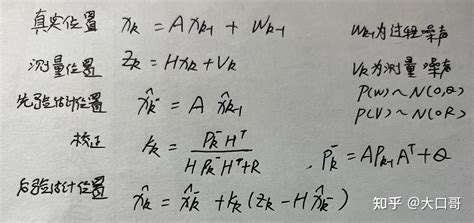 真实位置 xₖ = A xₖ₋₁ + Wₖ₋₁ Wₖ₋₁为过程噪声
测量位置 Zₖ = Hxₖ + Vₖ Vₖ为测量噪声
P(W) ~ N(0,Q)
先验估计位置 x̂ₖ⁻ = A x̂ₖ₋₁ P(V) ~ N(0,R)
校正 Kₖ = Pₖ⁻Hᵀ / (HPₖ⁻Hᵀ+R) , Pₖ⁻ = APₖ₋₁Aᵀ + Q
后验估计位置 x̂ₖ = x̂ₖ⁻ + Kₖ(Zₖ - Hx̂ₖ⁻)
知乎 @大口哥